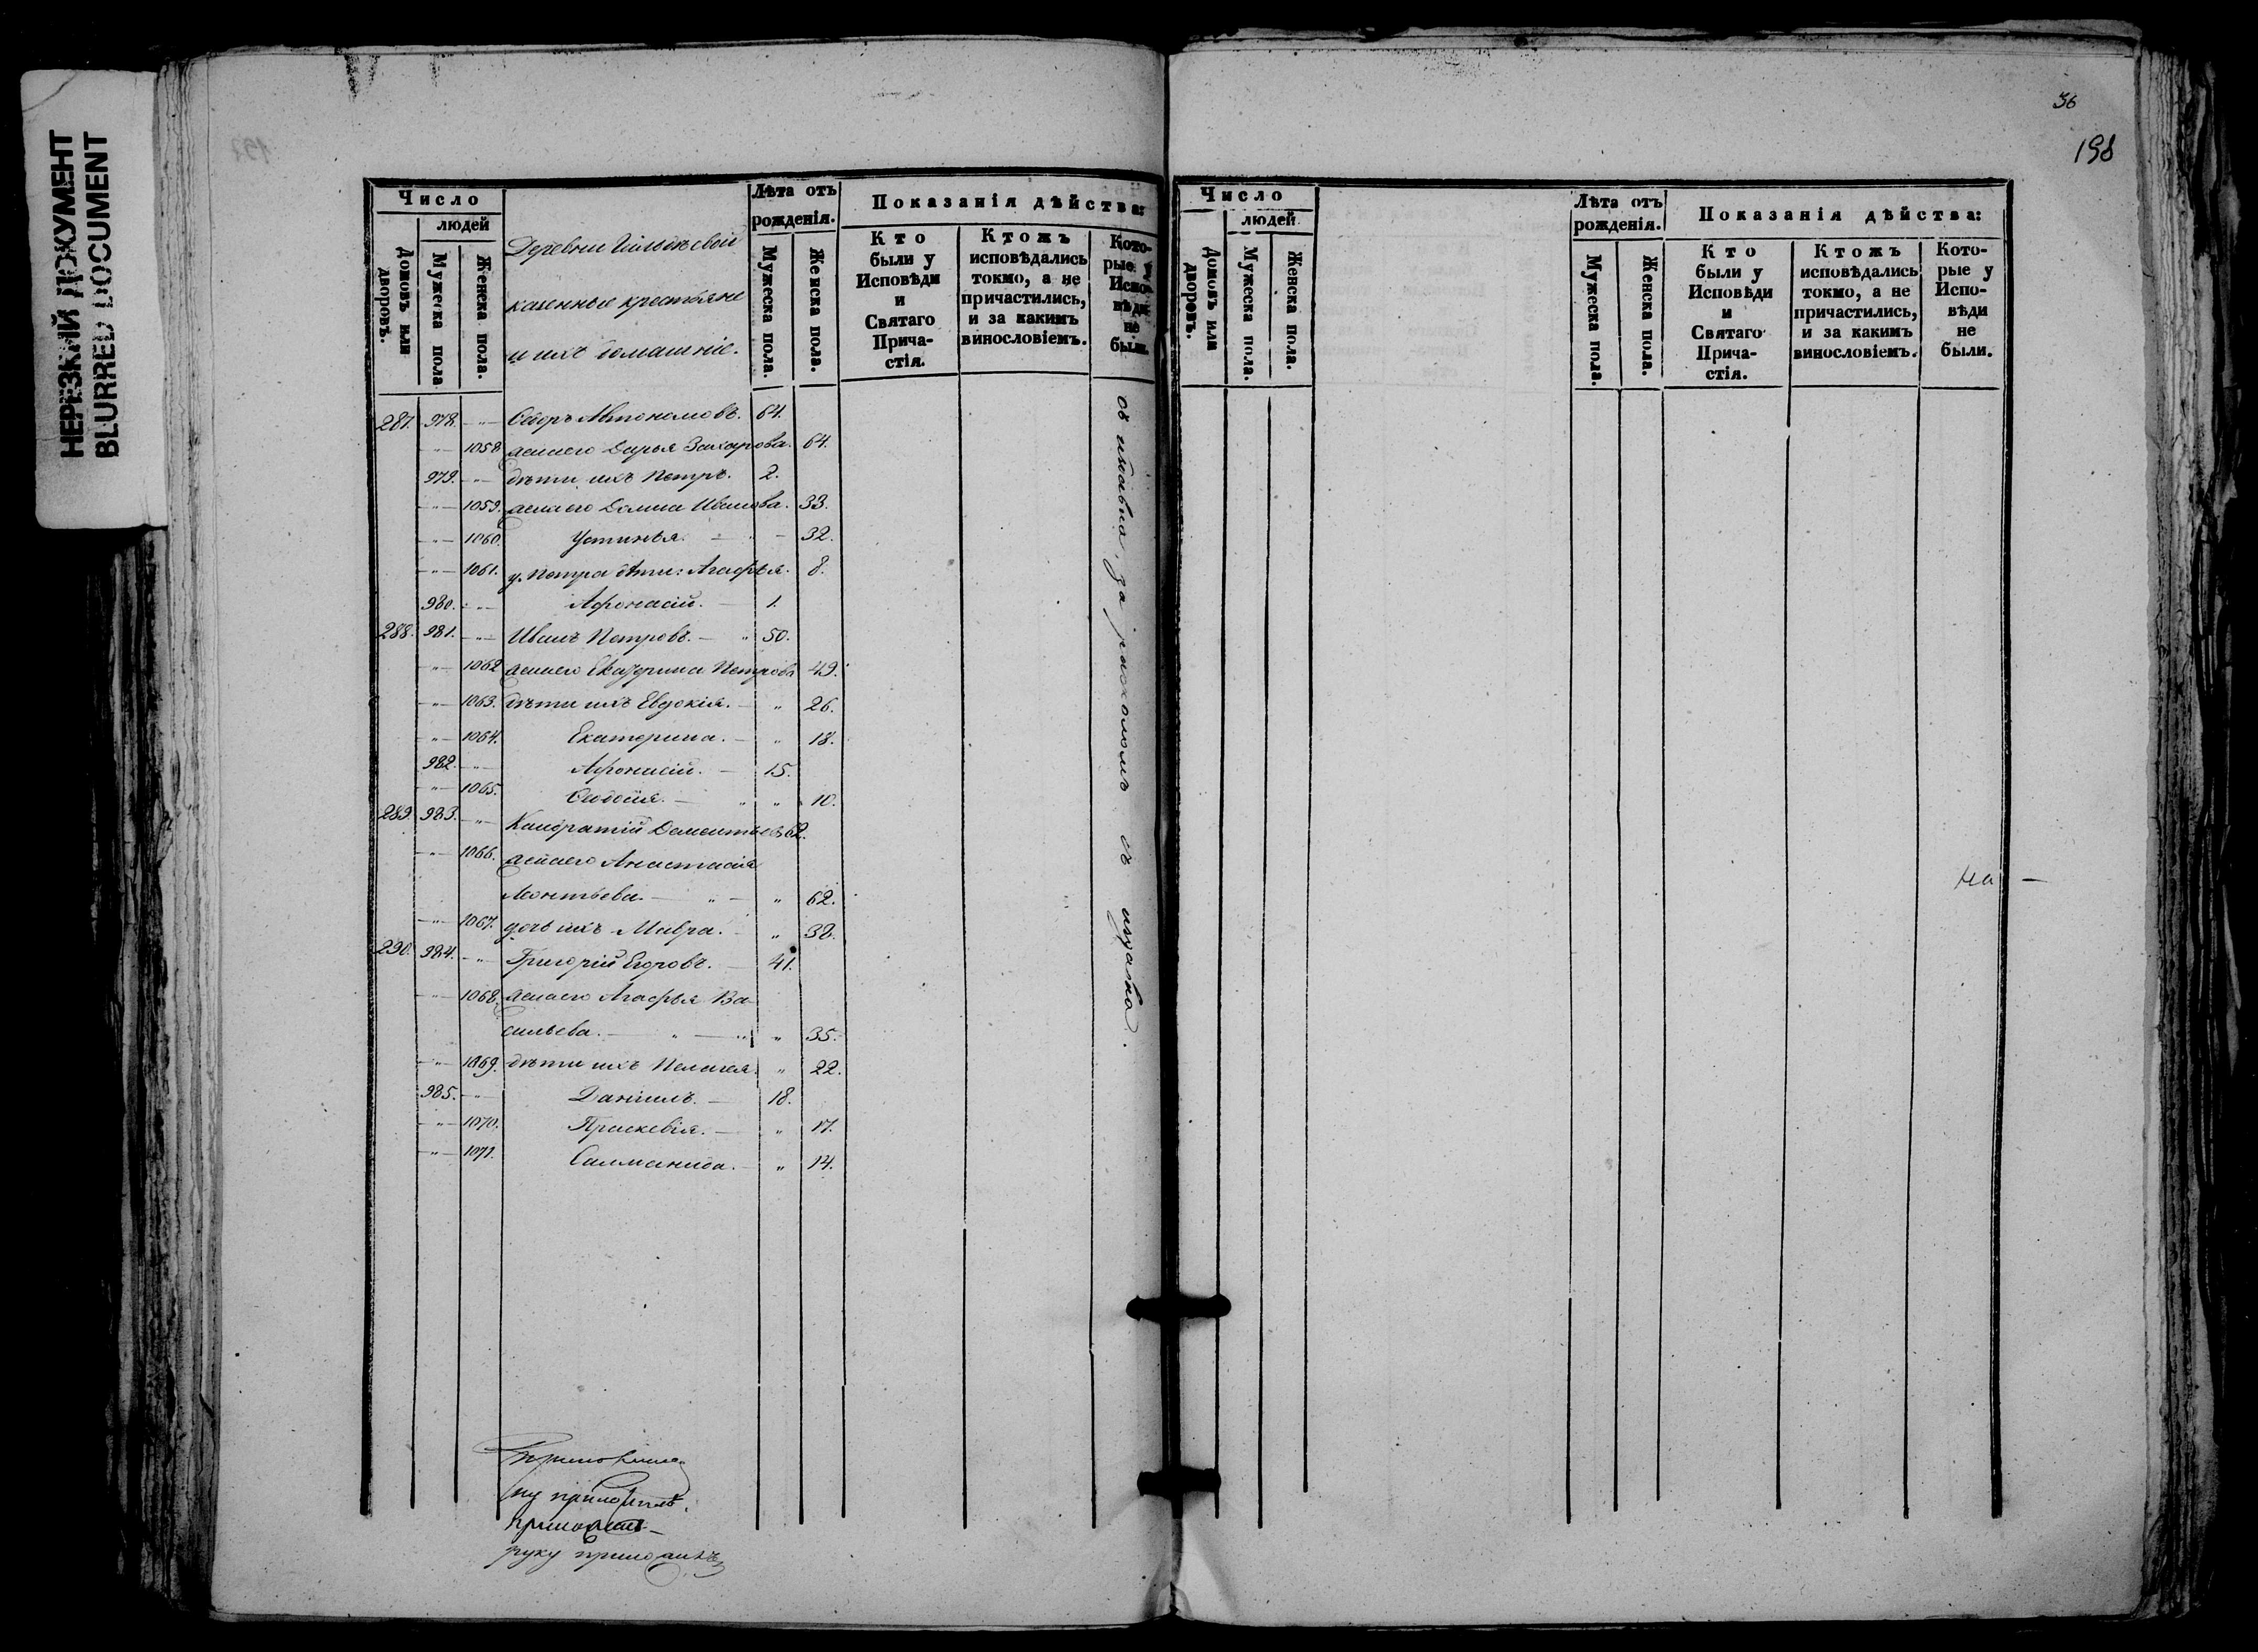 НЕРЕЗКИЙ ДОКУМЕНТ
BLURRED DOCUMENT
36
198
Число
людей
Домовъ или дворовъ.
Мужеска пола
Женска пола.
Деревни
казенные крестьяне
и ихъ домашніе.
Лѣта отъ рожденія.
Мужеска пола.
Женска пола.
Показанія дѣйства:
Кто были у Исповѣди и Святаго Прича-стія.
Ктожъ исповѣдались токмо, а не причастились, и за какимъ винословіемъ.
Кото-рые у Испо-вѣди не были.
287. 978. -"- Ѳедоръ Автономовъ. 64.
-"- 1058 жена его Дарья Захарова. 64.
979. -"- дѣти ихъ Петръ. 2.
-"- 1059. жена его Домна Иванова. 33.
-"- 1060. Устинья. 32.
-"- 1061. у Петра дѣти: Агафья. 8.
980. -"- Афонасій. 1.
288. 981. -"- Иванъ Петровъ. 50.
-"- 1062 жена его Екатерина Петрова 49.
-"- 1063. дѣти ихъ Евдокія. " 26.
-"- 1064. Екатерина. " 18.
982. -"- Афонасій. 15.
-"- 1065. Ѳеодосія. " 10.
289. 983. -"- Кандратій Дементьевъ 62.
-"- 1066. жена его Анастасія
Леонтьева. " 62.
-"- 1067. дочь ихъ Мавра. " 38.
290. 984. -"- Григорій Егоровъ. 41.
-"- 1068. жена его Агафья Ва-
сильева. " 35.
-"- 1069. дѣти ихъ Пелагея. " 22.
985. -"- Даніилъ. 18.
-"- 1070. Праскевія. " 17.
-"- 1071. Саломанида. " 14.
за расколомъ
руку приложилъ
Число
людей
Домовъ или дворовъ.
Мужеска пола.
Женска пола.
Лѣта отъ рожденія.
Мужеска пола.
Женска пола.
Показанія дѣйства:
Кто были у Исповѣди и Святаго Прича-стія.
Ктожъ исповѣдались токмо, а не причастились, и за какимъ винословіемъ.
Кото-рые у Испо-вѣди не были.
на —